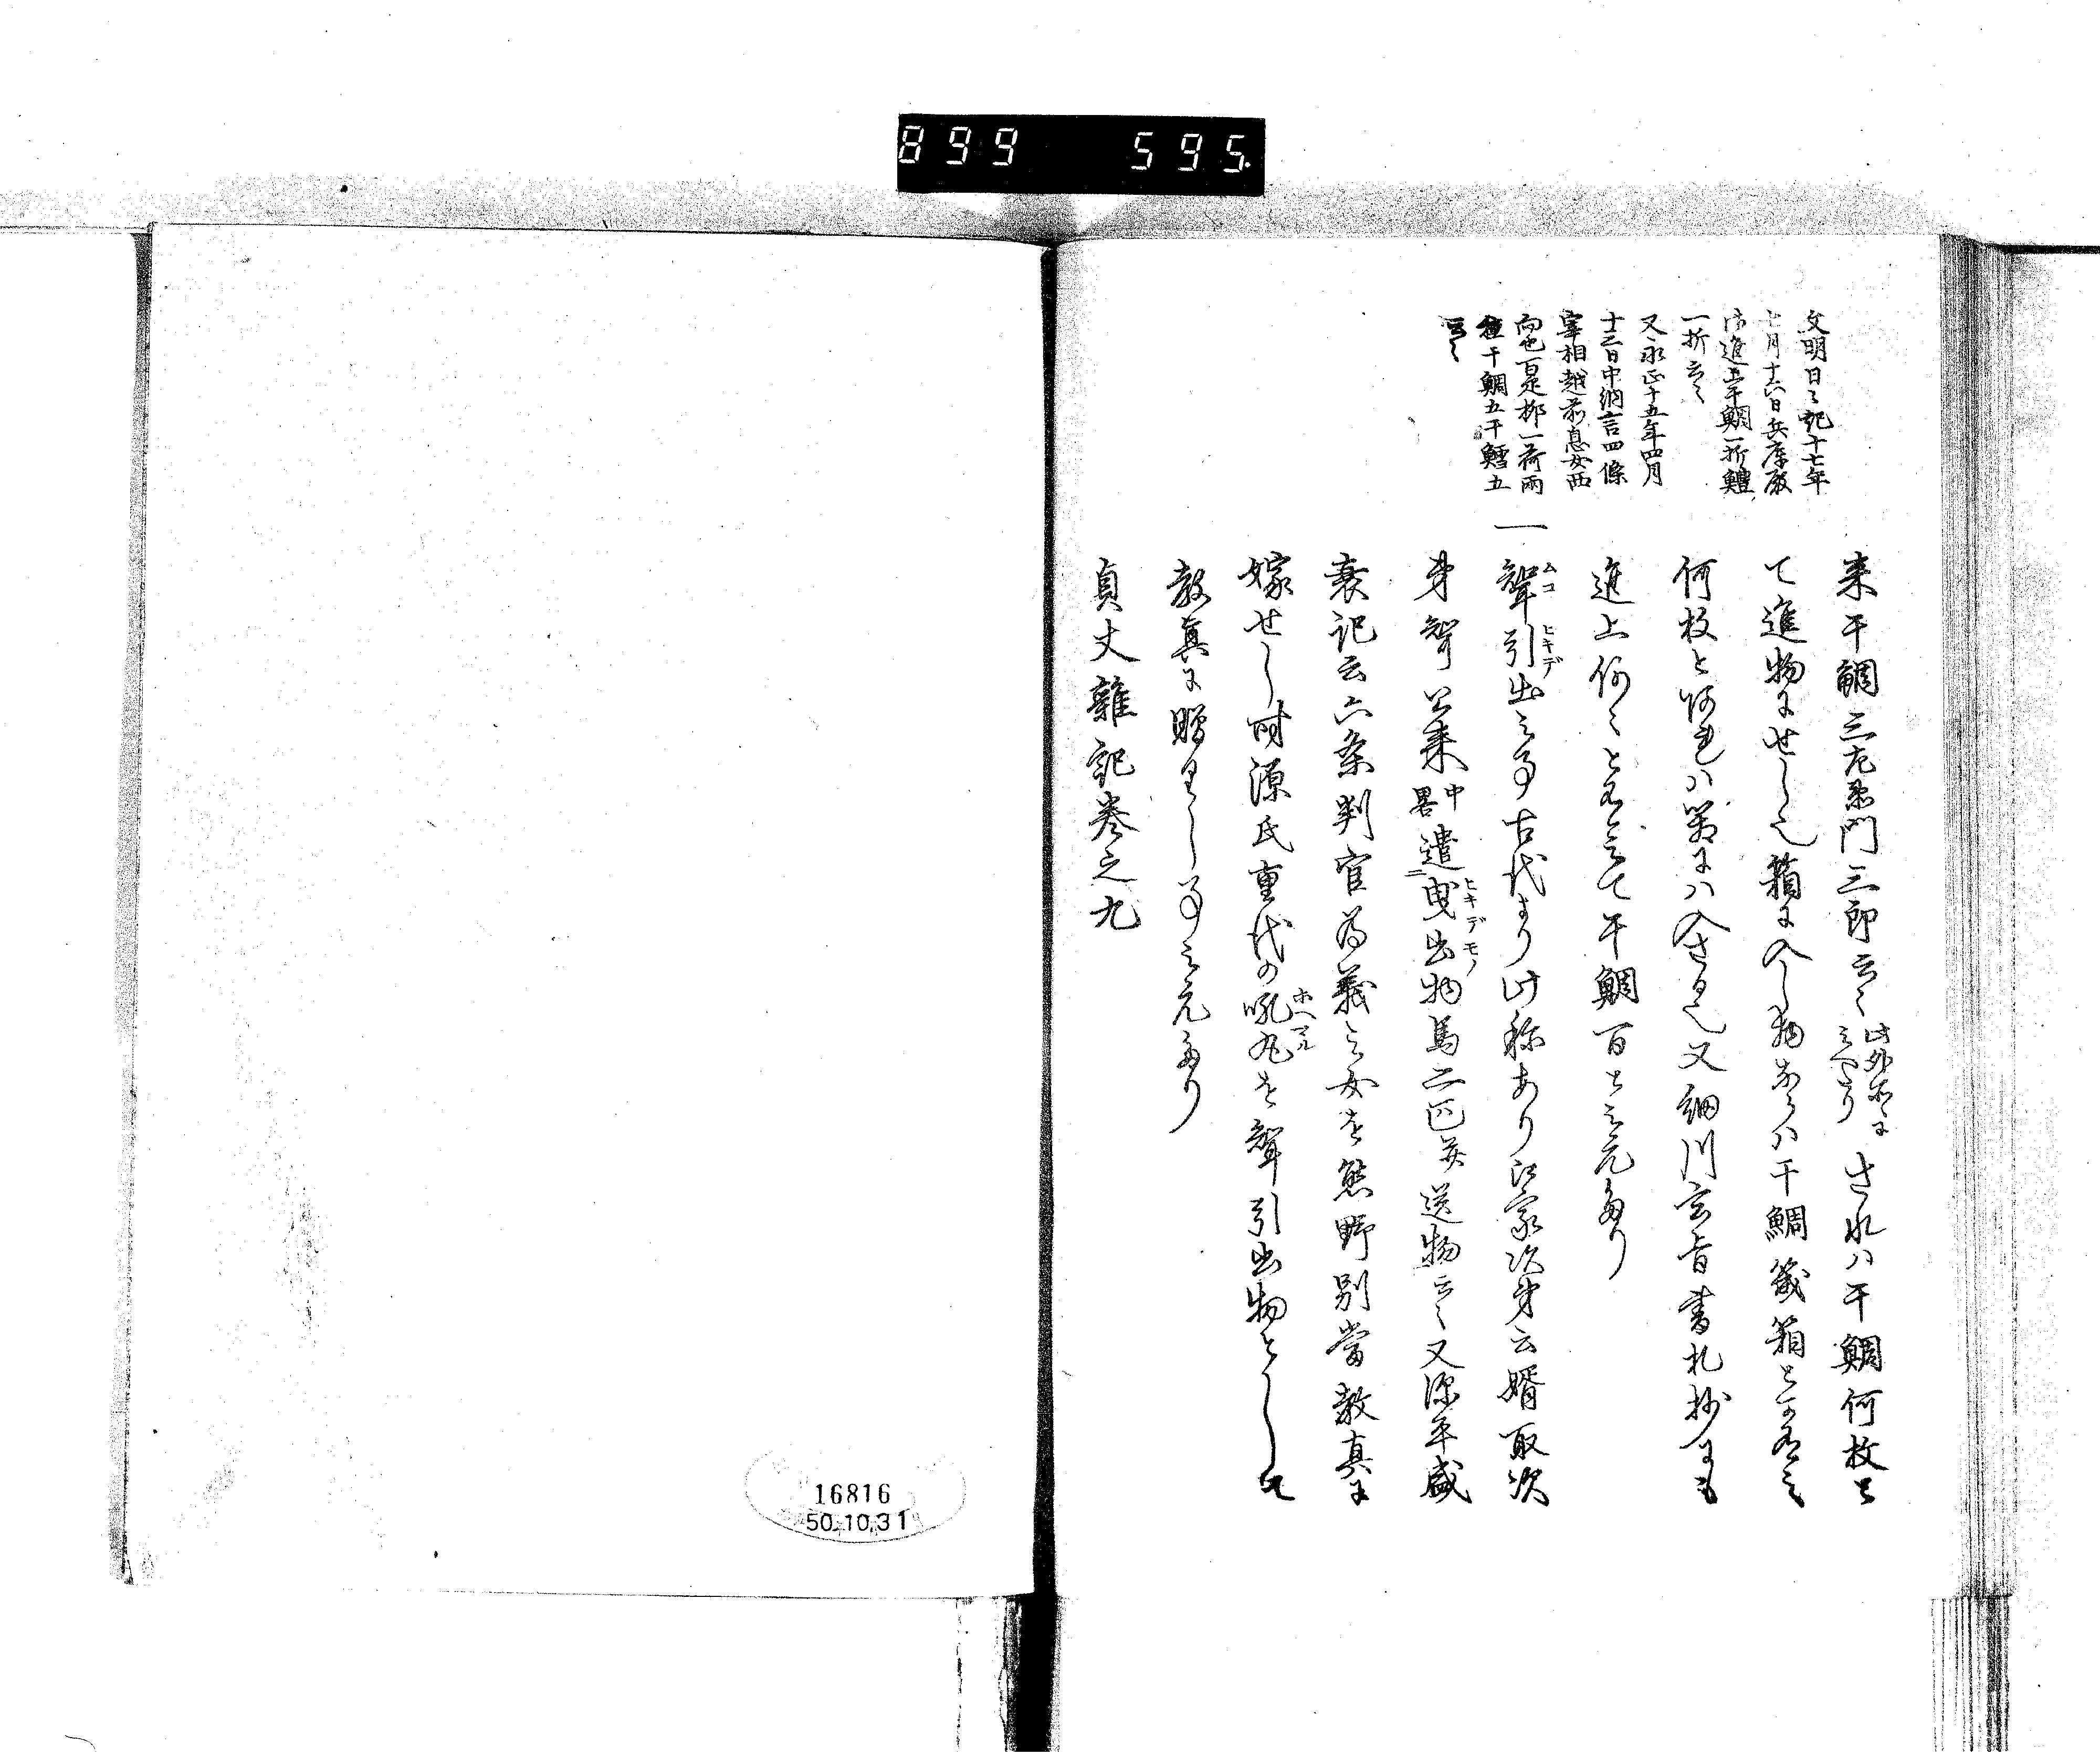 899 595.
文明日々記十七年
七月十六日兵庫殿
御進上干鯛一折鱧
一折云々
又永正十五年四月
十三日中納言四條
宰相越前息女西
向也百疋柳一荷両
種干鯛五干鱈五
云々
来干鯛三左衛門三郎云々此外所々ニみへたりされハ干鯛何枚と
て進物にせし也箱に入し物ならハ干鯛幾箱と可有に
何枚とあれハ箱にハ入さる也又細川玄旨書札抄にも
進上何々と有之て干鯛百と云々見へたり
一聟引出と云事古代より此称あり江家次第云婿取次
ムコ ヒキデ
第聟公来中畧遣曳出物馬二匹英送物云々又源平盛
ニ ヒキデモノ
衰記云六条判官為義之女を熊野別當教真に
嫁せし時源氏重代の吼丸を聟引出物として
ホヘマル
教真に贈りし事見へたり
貞丈雜記巻之九
16816
50.10.31